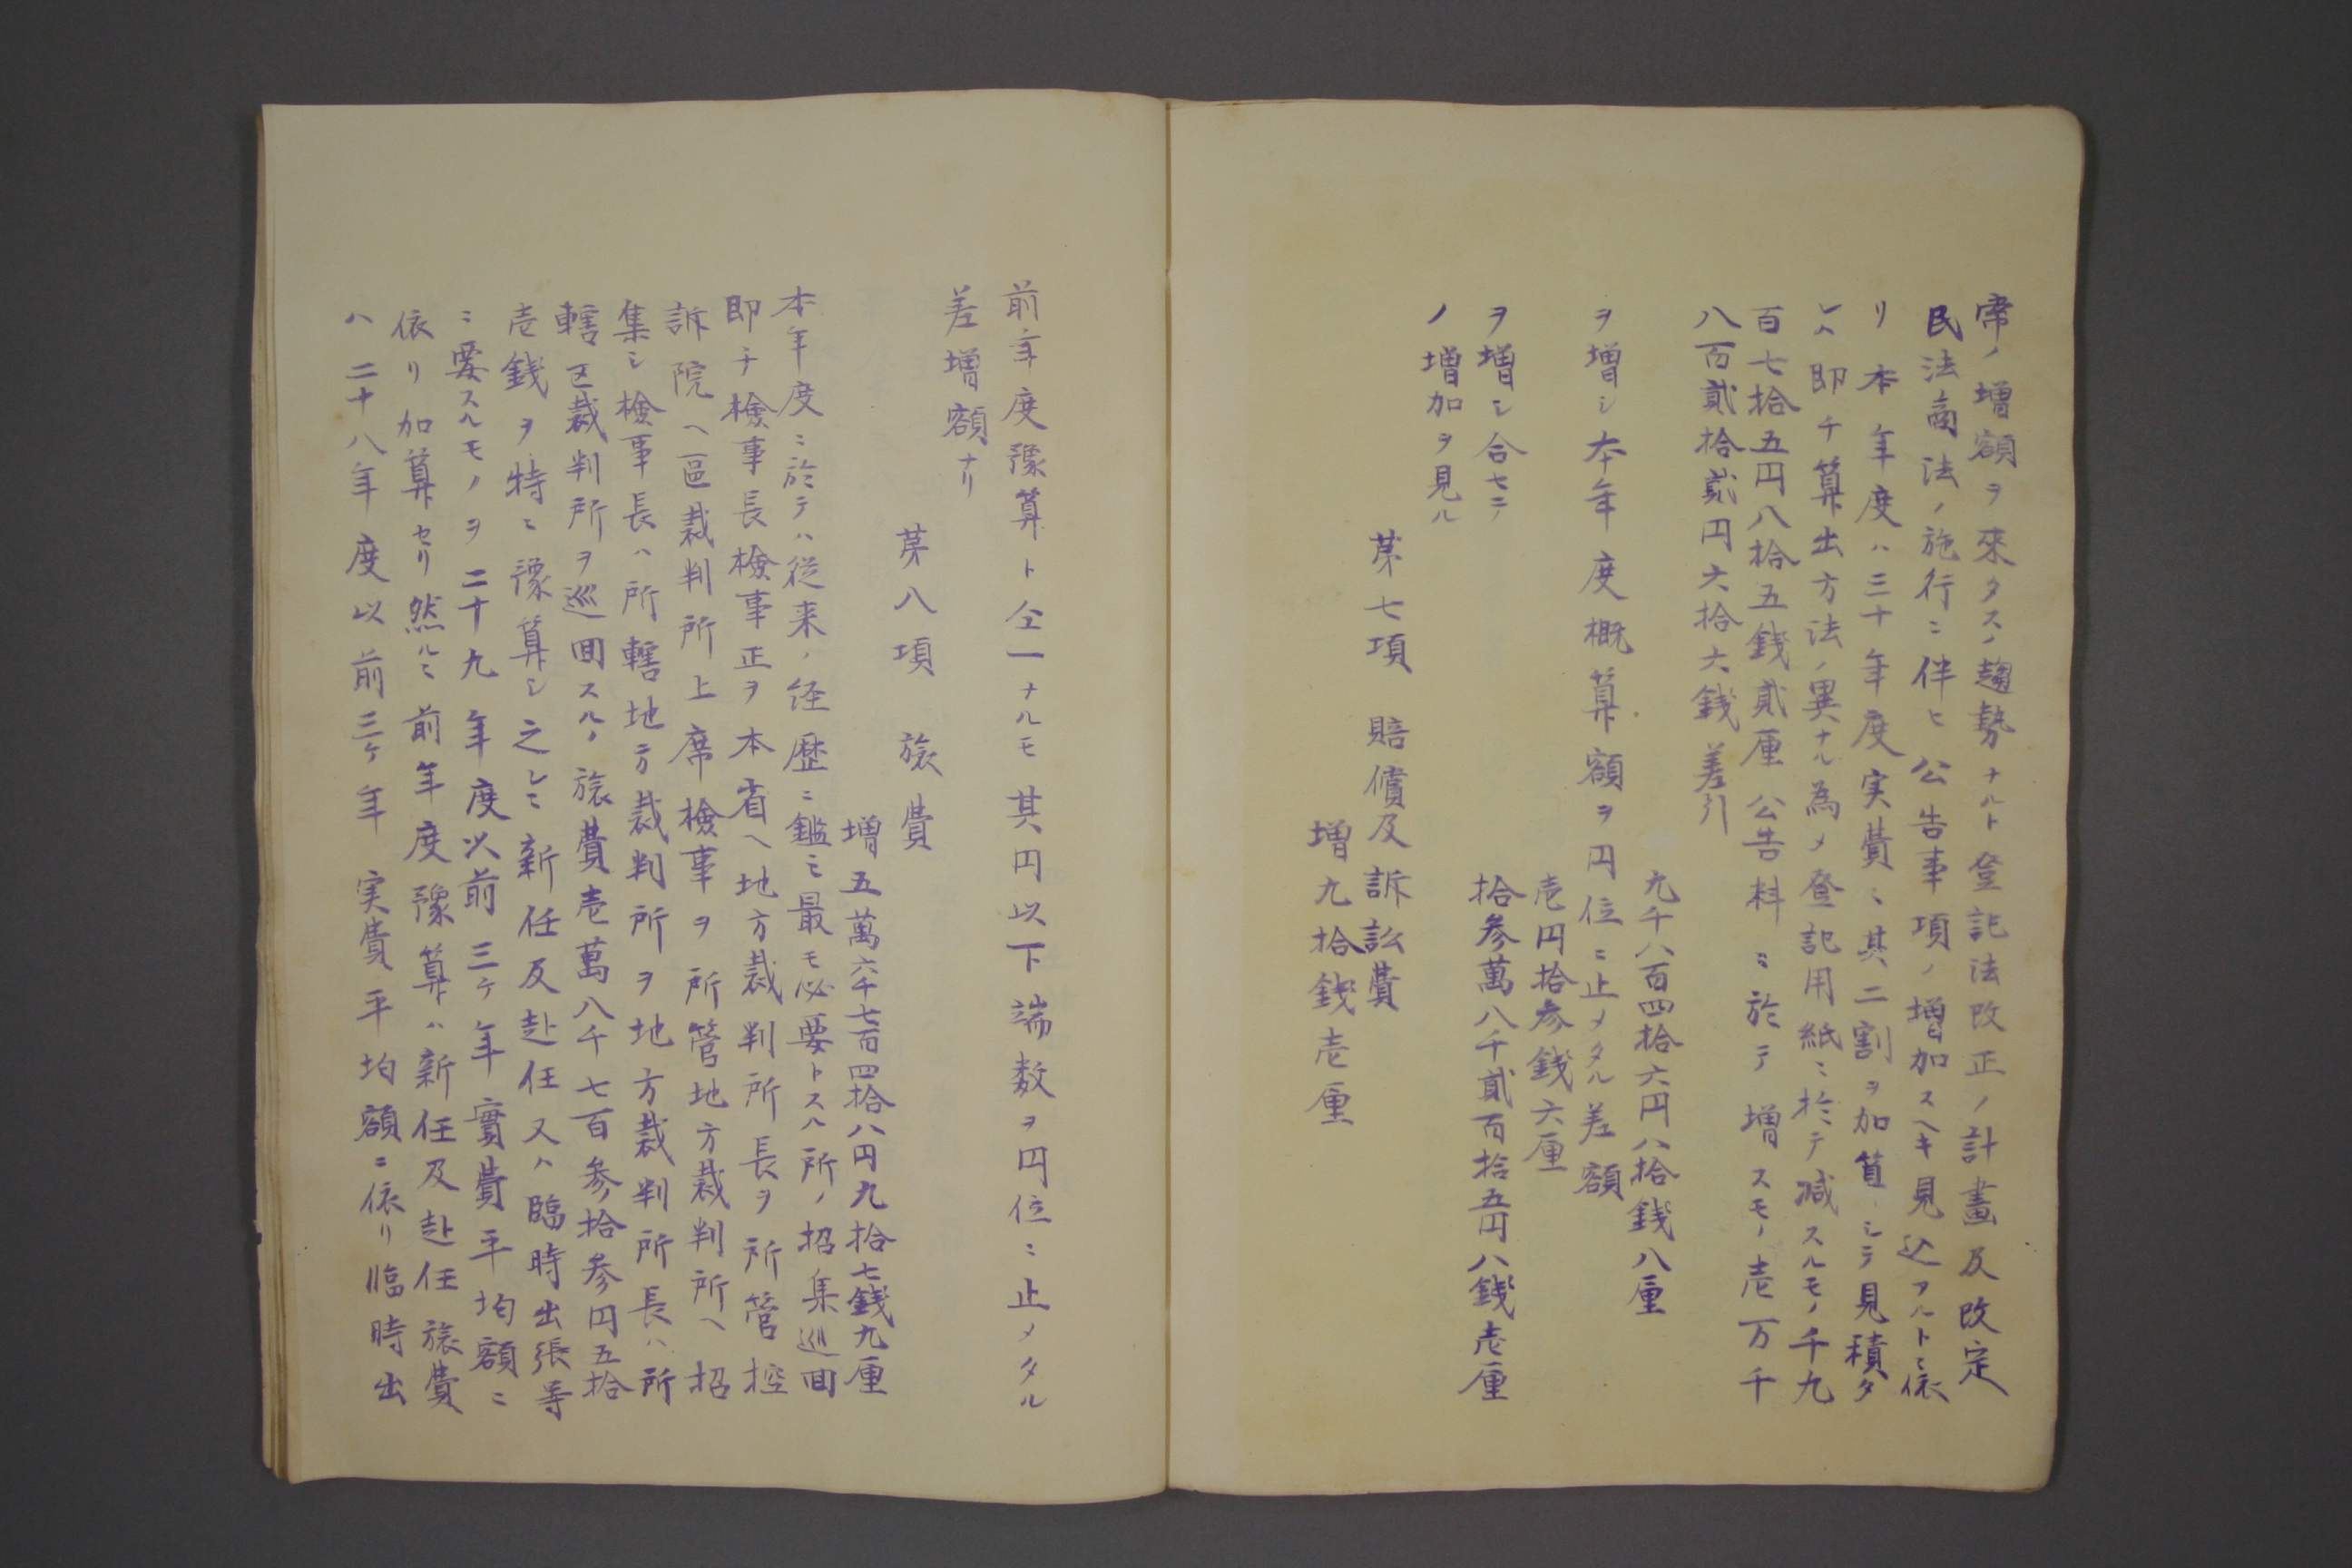 常ノ増額ヲ來タスノ趨勢ナルト登記法改正ノ計畫及改定
民法商法ノ施行ニ伴ヒ公告事項ノ増加スヘキ見込アルトニ依
リ本年度ハ三十年度実費ニ其二割ヲ加算シテ見積タ
レハ即チ算出方法ノ異ナル為メ登記用紙ニ於テ減スルモノ千九
百七拾五円八拾五銭貳厘公告料ニ於テ増スモノ壱万千
八百貳拾貳円六拾六銭差引
九千八百四拾六円八拾銭八厘
ヲ増シ本年度概算額ヲ円位ニ止メタル差額
壱円拾参銭六厘
ヲ増シ合セテ
拾参萬八千貳百拾五円八銭壱厘
ノ増加ヲ見ル
第七項 賠償及訴訟費
増九拾銭壱厘
前年度豫算ト仝一ナルモ其円以下端数ヲ円位ニ止メタル
差増額ナリ
第八項 旅費
増五萬六千七百四拾八円九拾七銭九厘
本年度ニ於テハ従来ノ経歴ニ鑑ミ最モ必要トスル所ノ招集巡回
即チ檢事長檢事正ヲ本省ヘ地方裁判所長ヲ所管控
訴院ヘ區裁判所上席檢事ヲ所管地方裁判所ヘ招
集シ檢事長ハ所轄地方裁判所ヲ地方裁判所長ハ所
轄区裁判所ヲ巡回スルノ旅費壱萬八千七百参拾参円五拾
壱銭ヲ特ニ豫算シ之レニ新任及赴任又ハ臨時出張等
ニ要スルモノヲ二十九年度以前三ケ年實費平均額ニ
依リ加算セリ然ルニ前年度豫算ハ新任及赴任旅費
ハ二十八年度以前三ケ年実費平均額ニ依リ臨時出